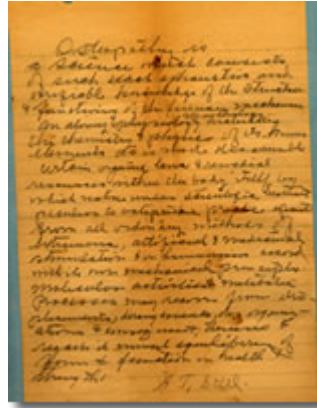 Osteopathy is
a science which consists
of such exact exhaustive and
verifiable knowledge of the structure
& functions of the human mechanism
anatomy physiology including
the chemistry & physics of its known
elements as is made discernable
certain organic laws & remedial
resources within the body itself by
which nature under scientific treatment
peculiar to osteopathic practice apart
from all ordinary methods of
extraneous, artificial & medicinal
stimulation & in harmonious accord
with its own mechanical principles
molecular activities & metabolic
processes may recover from dis-
placements, derangements, disorgani-
zations & consequent diseases &
regain its normal equilibrium of
form & function in health &
strength
A. T. Still.